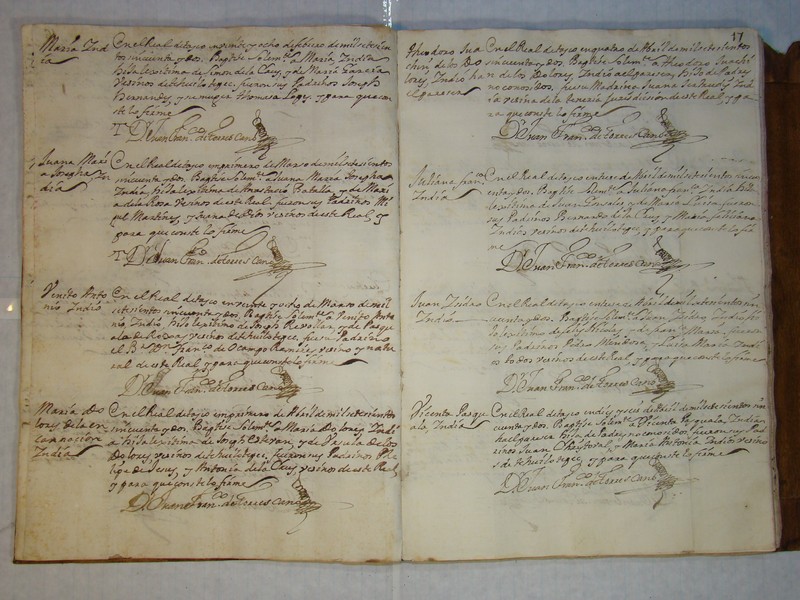 María Ind
ia
En el Real de tasco en veinte y ocho de febrero de mil setesien
tos cincuenta y dos, Baptise Solemte. a María, Yndia
hija lexitima de Simon de la Cruz, y de María García
vesinos de tehuilotepec, fueron sus Padrinos Joseph
Bernardes, y su muger Thomasa y para que con
ste lo firme
Dr. Juan Franco. de Torres Cano
Juana Marí
a Josepha Yn
dia
En el Real de tasco en primero de Marso de mil setesientos
cincuenta y dos, Baptise Solemte. a Juana María Josepha
Yndia, hija lexitima de Anastacio y de Marí
a de la Rosa vesinos de este Real, fueron sus Padrinos Mi
guel Martines, y Juana de Dios vesinos de este Real, y
para que conste lo firme
Dr. Juan Franco. de Torres Cano
Venito Anto
nio Yndio
En el Real de tasco en veinte y ocho de Marso de mil
setesientos cincuenta y dos, Baptise Solemte. a Venito Anto
nio Yndio, hijo lexitimo de Joseph y de Pasqu
ala de vesinos de tehuilotepec, fue su Padrino
el Br. Dn. Franco. de Ocampo Ramires vesino y natu
ral de este Real, y para que conste lo firme
Dr. Juan Franco. de Torres Cano
María do
lores de la en
carnacion
Yndia
En el Real de tasco en primero de Abril de mil setesientos
cincuenta y dos, Baptise Solemte. a María Dolores Yndi
a hija lexitima de Joseph Estevan, y de Pascuala de los
Dolores vesinos de tehuilotepec, fueron sus Padrinos Phe
lipe de Jesus, y Antonia de la Cruz vesinos de este Real,
y para que conste lo firme
Dr. Juan Franco. de Torres Cano
17
Theodoro Joa
chin de los Do
lores, Yndio
al garesca
En el Real de tasco en quatro de Abril de mil setesientos
cincuenta y dos, Baptise Solemte. a Theodoro Joachi
n de los Dolores, Yndio al garesca, hijo de Padres
no conosidos, fue su Madrina Juana Yndi
a vesina de la jurisdision de este Real, y pa
ra que conste lo firme
Dr. Juan Franco. de Torres Cano
Juliana Franca.
Yndia
En el Real de tasco en trece de Abril de mil setesientos cin
cuenta y dos, Baptise Solemte. a Juliana Franca. Yndia hija
lexitima de Juan Gonsales, y de María fueron
sus Padrinos Bernardo de la Cruz, y María
Yndios vesinos de tehuilotepec, y para que conste lo fir
me
Dr. Juan Franco. de Torres Cano
Juan Ysidro
Yndio
En el Real de tasco en trece de Abril de mil setesientos cin
cuenta y dos, Baptise Solemte. a Juan Ysidro, Yndio, hijo
lexitimo de y de Franca. María, fueron
sus Padrinos Pedro Mendosa, y Luisa María Yndi
os todos vesinos de este Real, y para que conste lo firme
Dr. Juan Franco. de Torres Cano
Vicenta Pasqu
ala, Yndia
En el Real de tasco en dies y seis de Abril de mil setesientos cin
cuenta y dos, Baptise Solemte. a Vicenta Pasquala, Yndia
al garesca hija de Padres no conosidos, fueron sus Pad
rinos Juan Christoval, y María Antonia Yndios vesino
s de tehuilotepec, y para que conste lo firme
Dr. Juan Franco. de Torres Cano